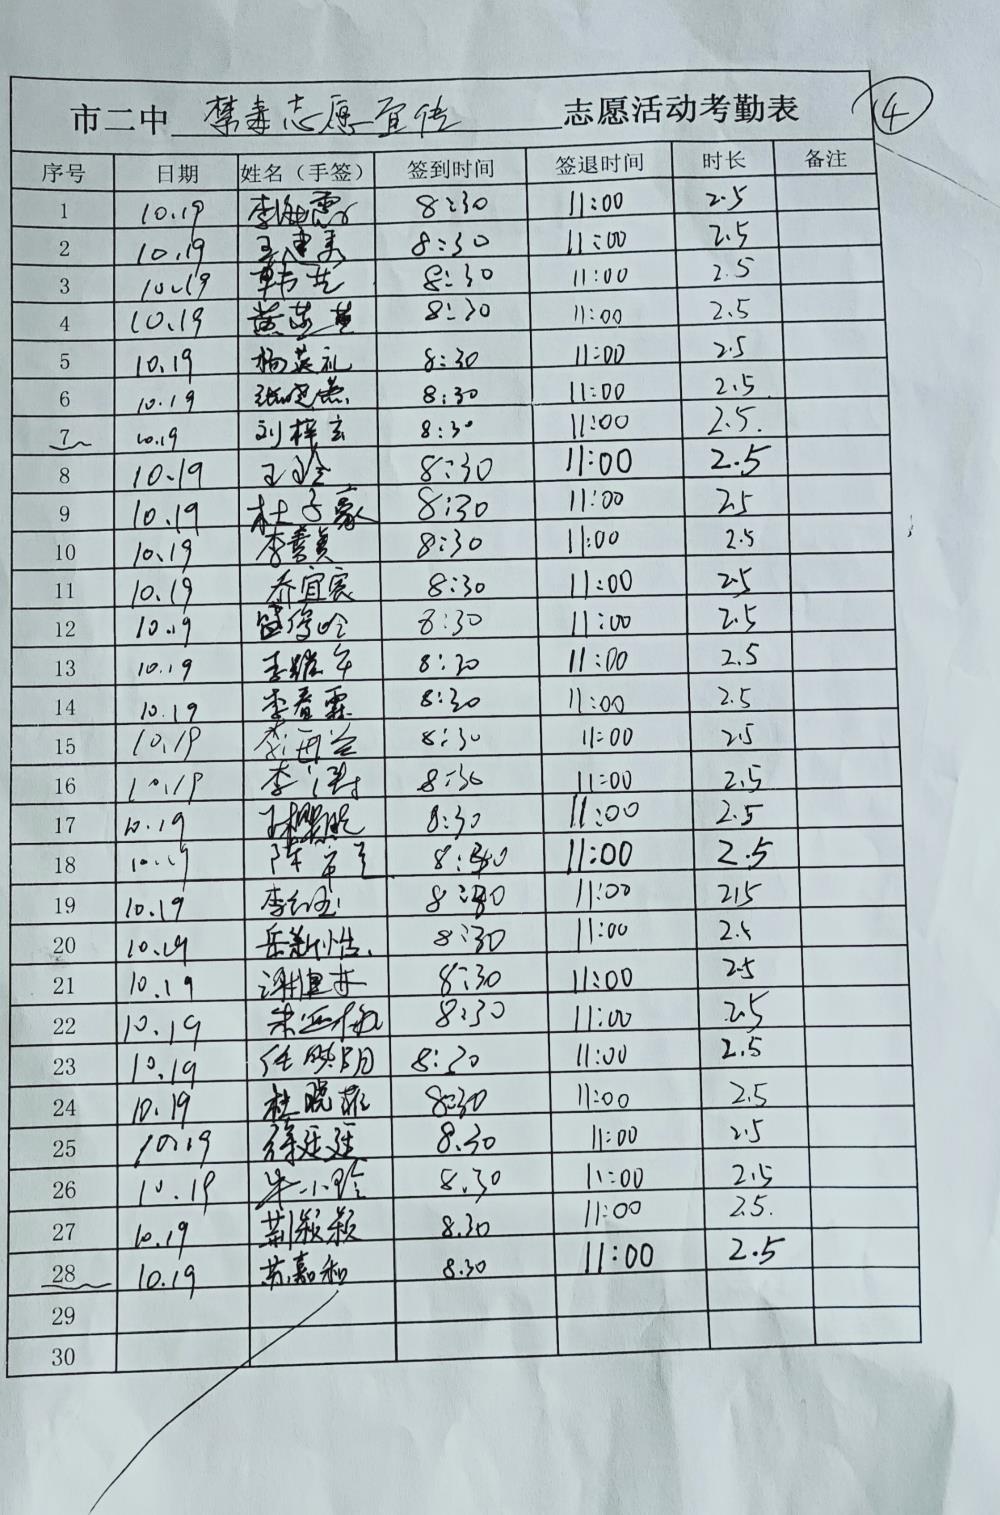 ④
市二中 禁毒志愿宣传 志愿活动考勤表
序号 日期 姓名（手签） 签到时间 签退时间 时长 备注
1 10.19 8:30 11:00 2.5
2 10.19 8:30 11:00 2.5
3 10.19 韩芝 8:30 11:00 2.5
4 10.19 8:30 11:00 2.5
5 10.19 杨英礼 8:30 11:00 2.5
6 10.19 8:30 11:00 2.5
7 10.19 刘梓玄 8:30 11:00 2.5.
8 10.19 王玲 8:30 11:00 2.5
9 10.19 杜子豪 8:30 11:00 2.5
10 10.19 李善真 8:30 11:00 2.5
11 10.19 乔宜宸 8:30 11:00 2.5
12 10.19 8:30 11:00 2.5
13 10.19 8:30 11:00 2.5
14 10.19 李春霖 8:30 11:00 2.5
15 10.19 8:30 11:00 2.5
16 10.19 李 8:30 11:00 2.5
17 10.19 8:30 11:00 2.5
18 10.19 陈 8:30 11:00 2.5
19 10.19 8:30 11:00 2.5
20 10.19 8:30 11:00 2.5
21 10.19 8:30 11:00 2.5
22 10.19 8:30 11:00 2.5
23 10.19 任 8:30 11:00 2.5
24 10.19 杜晓菲 8:30 11:00 2.5
25 10.19 8.30 11:00 2.5
26 10.19 牛小玲 8.30 11:00 2.5
27 10.19 荆颖颖 8.30 11:00 2.5.
28 10.19 苏嘉和 8.30 11:00 2.5
29
30